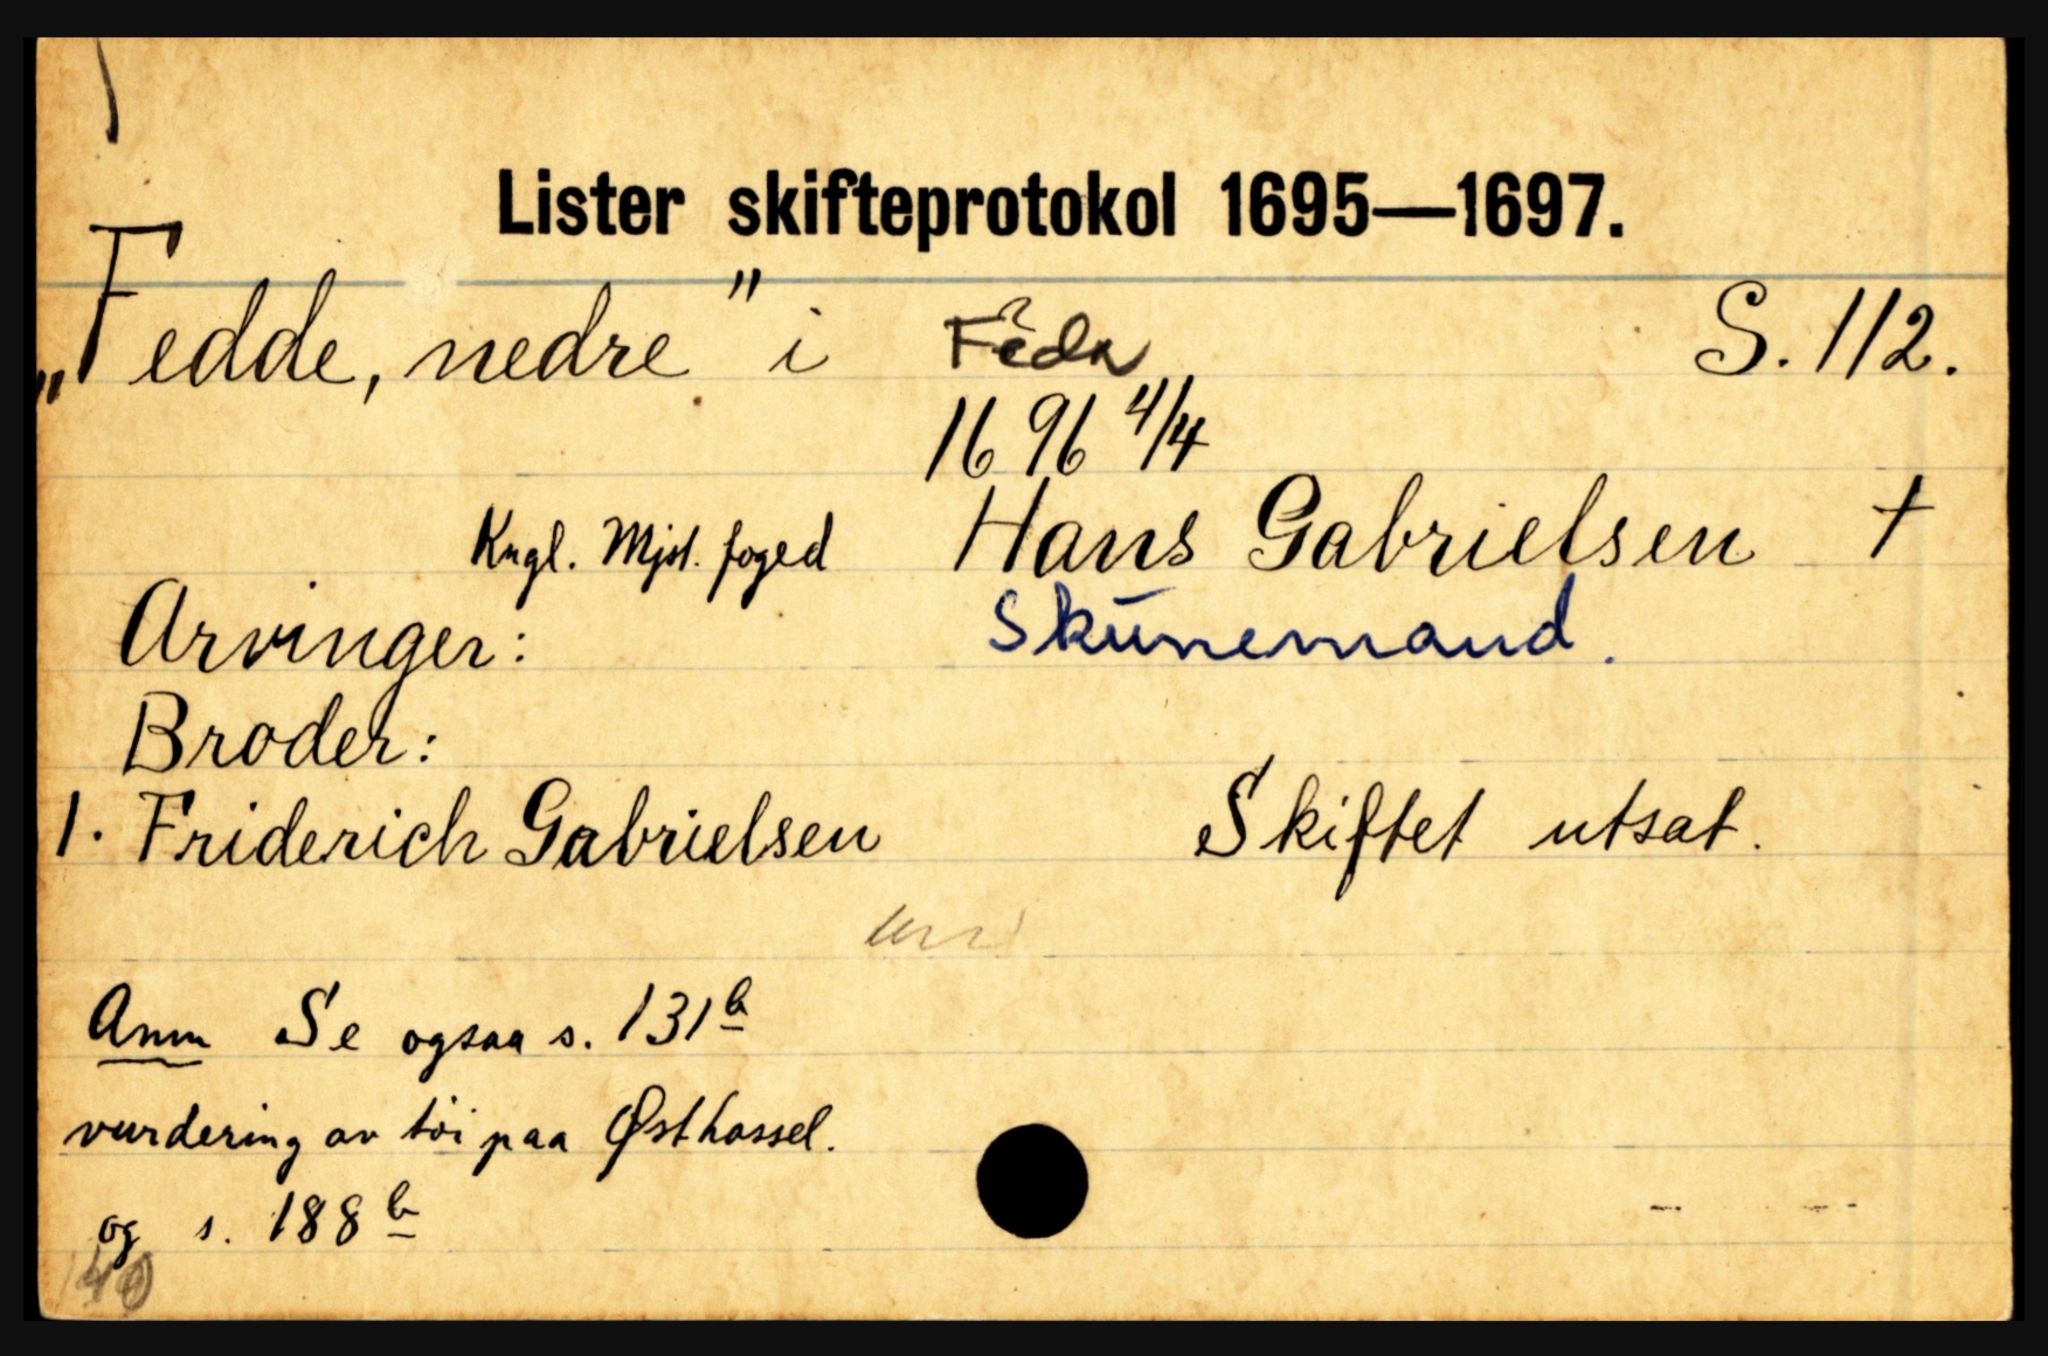 Lister skifteprotokol 1695—1697.
„Fedde, nedre" i Feda S. 112.
1696 4/4
Kngl. Mjst. foged Hans Gabrielsen †
Arvinger: Skünemand.
Broder:
1. Friderich Gabrielsen Skiftet utsat.
Anm Se ogsaa s. 131 b
vurdering av tøi paa Østhassel.
og s. 188 b
140